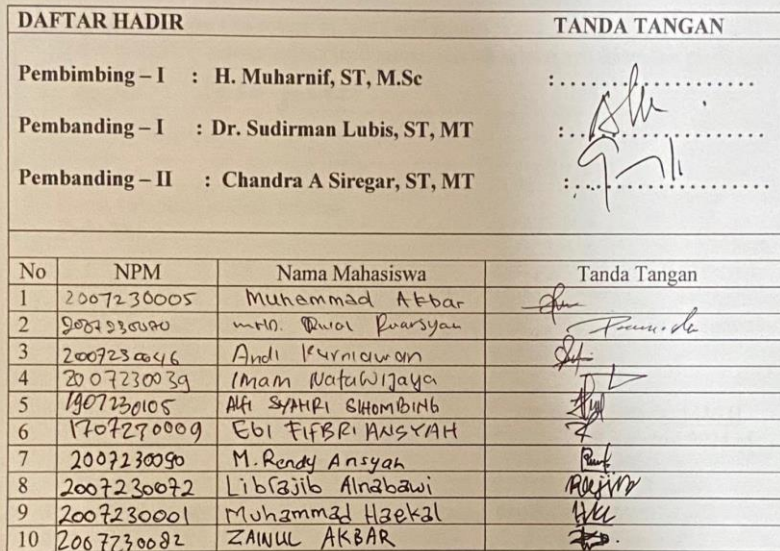 DAFTAR HADIR TANDA TANGAN
Pembimbing – I : H. Muharnif, ST, M.Sc :....................
Pembanding – I : Dr. Sudirman Lubis, ST, MT :....................
Pembanding – II : Chandra A Siregar, ST, MT :....................
No NPM Nama Mahasiswa Tanda Tangan
1 2007230005 Muhammad Akbar
2
3 2007230046 Andi Kurniawan
4 2007230039 Imam Natawijaya
5 1907230105 Alfi SYAHRI SIHOMBING
6 1707230009 EBI FIFBRIANSYAH
7 2007230090 M. Rendy Ansyah
8 2007230072 Librajib Alnabawi
9 2007230001 Muhammad Haekal
10 2007230082 ZAINUL AKBAR